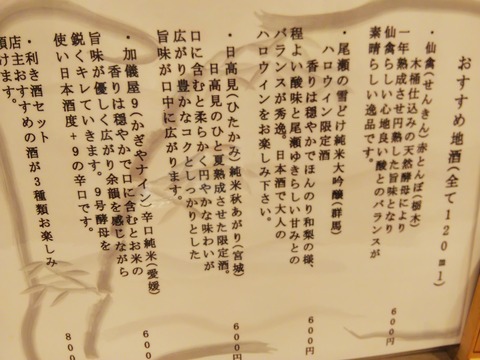 おすすめ地酒(全て120ml)
・仙禽(せんきん)赤とんぼ(栃木) 600円
木桶仕込みの天然酵母により
一年熟成させ円熟した旨味となり
仙禽らしい心地良い酸とのバランスが
素晴らしい逸品です。
・尾瀬の雪どけ純米大吟醸(群馬) 600円
ハロウィン限定酒
香りは穏やかでほんのり和梨の様、
程よい酸味と尾瀬ゆきらしい甘みとの
バランスが秀逸。日本酒で大人の
ハロウィンをお楽しみ下さい。
・日高見(ひたかみ)純米秋あがり(宮城) 600円
日高見のひと夏熟成させた限定酒。
口に含むと柔らかく円やかな味わいが
広がり豊かなコクとしっかりとした
旨味が口中に広がります。
・加儀屋9(かぎやナイン)辛口純米(愛媛) 600円
香りは穏やかで口に含むとお米の
旨味が優しく広がり余韻を感じながら
鋭くキレていきます。9号酵母を
使い日本酒度+9の辛口です。
・利き酒セット 800
店主おすすめの酒が3種類お楽しみ
頂けます。